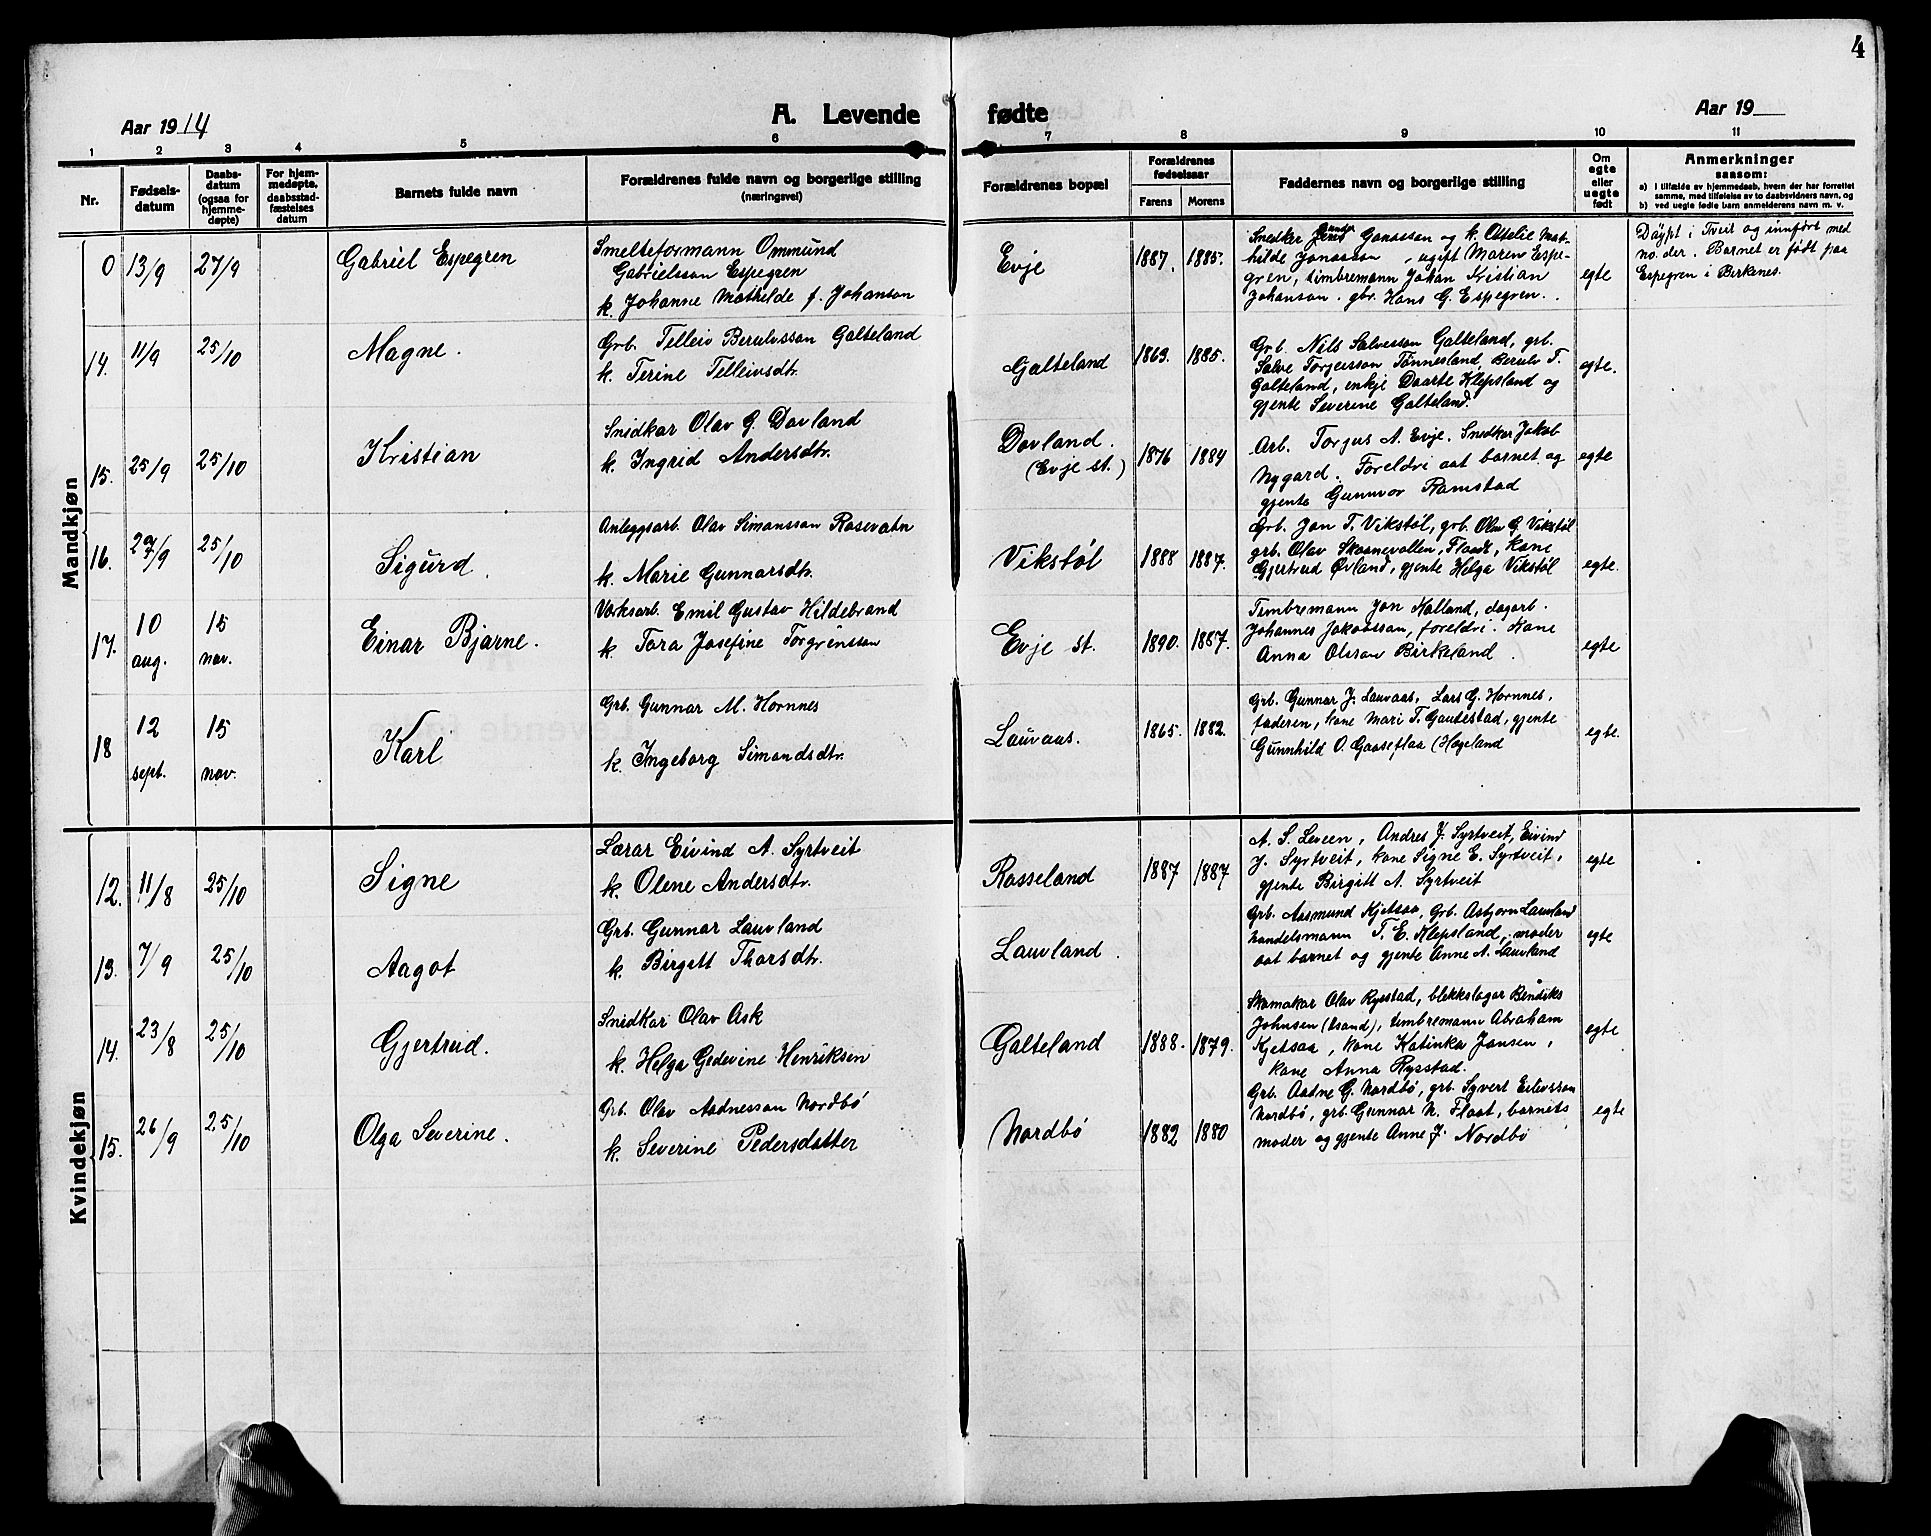 4
A. Levende fødte
Aar 1914
Aar 19
1 2 3 4 5 6 7 8 9 10 11
Nr.
Fødsels-
datum
Daabs-
datum
(ogsaa for
hjemme-
døpte)
For hjem-
medøpte,
daabsstad-
fæstelses
datum
Barnets fulde navn
Forældrenes fulde navn og borgerlige stilling
(næringsvei)
Forældrenes bopæl
Forældrenes
fødselsaar
Farens Morens
Faddernes navn og borgerlige stilling
Om
egte
eller
uegte
født
Anmerkninger
saasom:
a) i tilfælde av hjemmedaab, hvem der har forrettet
samme, med tilføielse av to daabsvidners navn, og
b) ved uegte fødte barn anmelderens navn m. v.
Mandkjøn
0 13/9 27/9 Gabriel Espegren
Smelteformann Ommund
Gabrielsson Espegren
k. Johanne Mathilde f. Johanson
Evje 1887. 1885.
Snedker Gonassan og k. Ottelie Mat-
hilde Jonassan, ugift Maren Espe-
gren, timbremann Johan Kristian
Johanson. gbr. Hans G. Espegren.
egte
Døypt i Tveit og innført med
no. der. Barnet er født paa
Espegren i Birkenes.
14. 11/9 25/10 Magne.
Grb. Telleiv Berulvsson Galteland
k. Terine Telleivsdtr.
Galteland 1863. 1885.
Grb. Nils Salvesson Galteland, grb.
Salve Torjusson Tønnesland, Berulv T.
Galteland, enkje Daarte Klepsland og
gjente Severine Galteland.
egte.
15. 25/9 25/10 Kristian
Snidkar Olav G. Dovland
k. Ingrid Andersdtr.
Dovland.
(Evje st.)
1876 1884
Arb. Torjus A. Evje. Snidkar Jakob
Nygard. Foreldri aat barnet og
gjente Gunnvor Ramstad
egte
16. 27/9 25/10 Sigurd.
Anleggsarb. Olav Simonsson Rosevatn
k. Marie Gunnarsdtr.
Vikstøl 1888 1887.
Grb. Jon T. Vikstøl, grb. Olav G. Vikstøl
grb. Olav Skaanevollen, Flaat, kone
Gjertrud Øvland, gjente Helga Vikstøl
egte.
17. 10 aug. 15 nov. Einar Bjarne.
Verksarb. Emil Gustav Hildebrand
k. Tora Josefine Torgrensson
Evje st. 1890. 1887.
Timbremann Jon Halland, dagarb.
Johannes Jakobsson, foreldri. Kone
Anna Olsson Birkeland.
egte
18 12 sept. 15 nov. Karl
Grb. Gunnar M. Hornnes
k. Ingeborg Simondsdtr.
Lauvaas. 1865. 1882.
Grb. Gunnar J. Lauvaas, Lars G. Hornnes,
faderen, kone Mari T. Gautestad, gjente
Gunnhild O. Gaaseflaa (Hageland
egte.
Kvindekjøn
12. 11/8 25/10 Signe
Lærar Eivind A. Syrtveit
k. Olene Andersdtr.
Rosseland 1887 1887
A. S. Leveen, Andres J. Syrtveit, Eivind
J. Syrtveit, kone Signe E. Syrtveit,
gjente Birgitt A. Syrtveit
egte
13. 7/9 25/10 Aagot
Grb. Gunnar Lauvland
k. Birgitt Thorsdtr.
Lauvland.
Grb. Aasmund Kjetsaa, Grb. Asbjørn Lauvland
handelsmann T. E. Klepsland, moder
aat barnet og gjente Anne A. Lauvland
egte
14. 23/8 25/10 Gjertrud.
Snidkar Olav Ask
k. Helga Gedevine Henriksen
Galteland 1888. 1879.
Skomakar Olav Rysstad, blekkslagar Bendiks
Johnsen, timbremann Abraham
Kjetsaa, kone Katinka Jansen,
kone Anna Rysstad.
egte
15. 26/9 25/10 Olga Severine.
Grb. Olav Aadnesson Nordbø
k. Severine Pedersdatter
Nordbø 1882 1880
Grb. Aadne G. Nordbø, grb. Syvert Eilivsson
Nordbø, grb. Gunnar N. Flaat, barnets
moder og gjente Anne J. Nordbø
egte